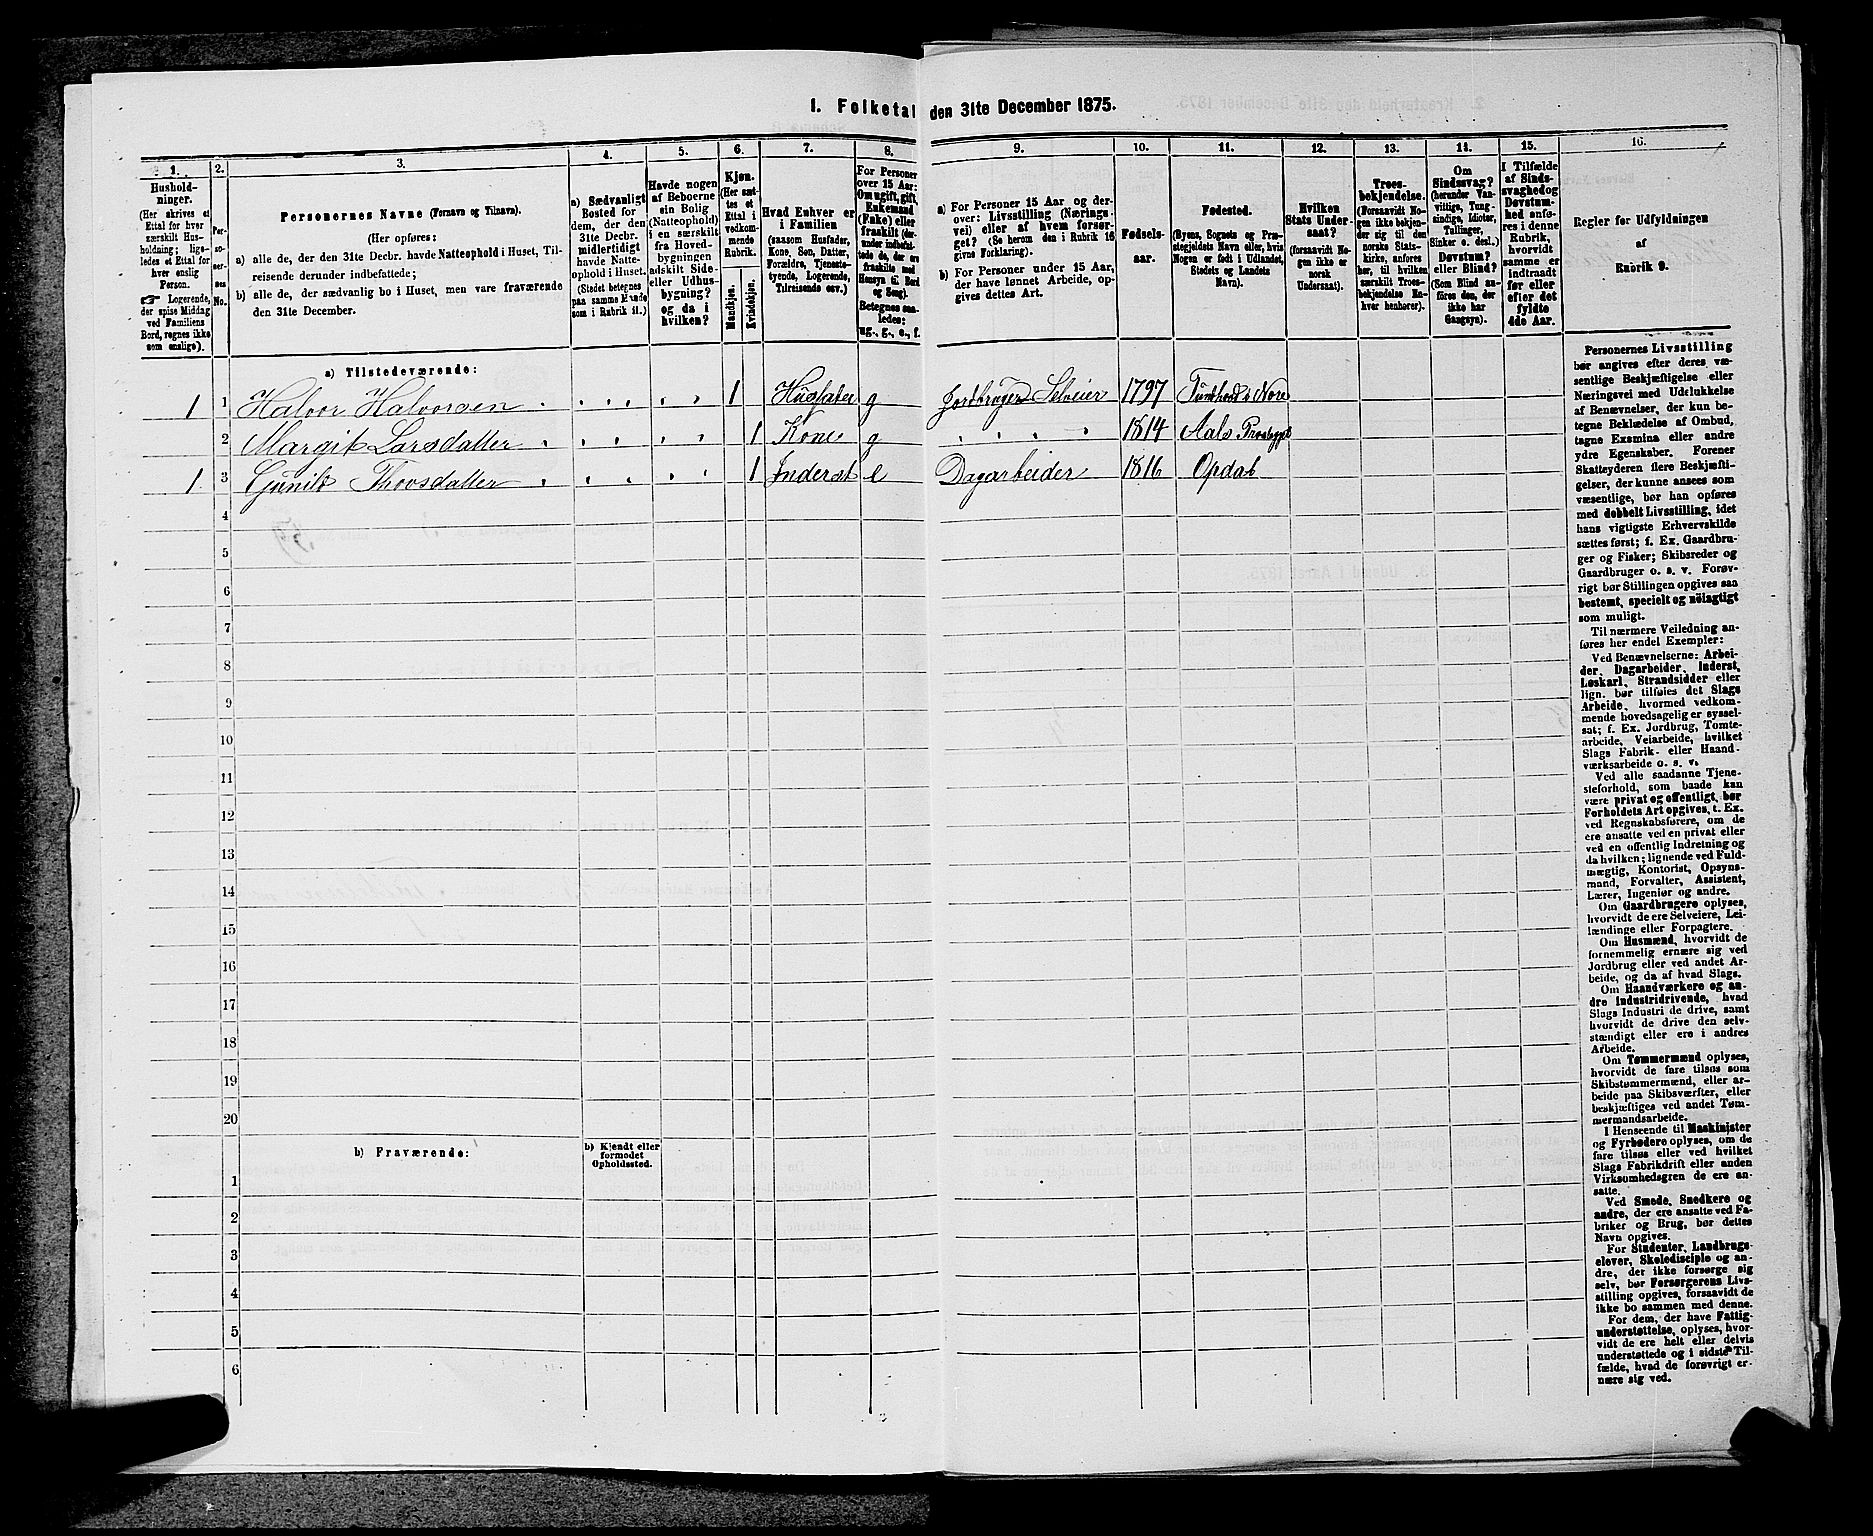 I. Folketal den 31te December 1875.
1. 2. 3. 4. 5. 6. 7. 8. 9. 10. 11. 12. 13. 14. 15. 16.
Hushold-
ninger.
(Her skrives et
Ettal for hver
særskilt Hus-
holdning; lige-
ledes et Ettal for
hver enslig
Person.
☞ Logerende,
der spise Middag
ved Familiens
Bord, regnes ikke
som enslige).
Per-
so-
ner-
nes
No.
Personernes Navne (Fornavn og Tilnavn).
(Her opføres:
a) alle de, der den 31te Decbr. havde Natteophold i Huset, Til-
reisende derunder indbefattede;
b) alle de, der sædvanlig bo i Huset, men vare fraværende
den 31te December.
a) Sædvanligt
Bosted for
dem, der den
31te Decbr.
midlertidigt
havde Natte-
ophold i Huset.
(Stedet betegnes
paa samme Maade
som i Rubrik 11.)
Havde nogen
af Beboerne
sin Bolig
(Natteophold)
i en særskilt
fra Hoved-
bygningen
adskilt Side-
eller Udhus-
bygning?
og da i
hvilken?
Kjøn.
(Her sæt-
tes et
Ettal i
vedkom-
mende
Rubrik.
Mandkjøn.
Kvindekjøn.
Hvad Enhver er
i Familien
(saasom Husfader,
Kone, Søn, Datter,
Forældre, Tjeneste-
tyende, Logerende,
Tilreisende osv.)
For Personer
over 15 Aar:
Om ugift, gift,
Enkemand
(Enke) eller
fraskilt (der-
under indbefat-
tede de, der ere
fraskilte med
Hensyn til Bord
og Seng).
Betegnes saa-
ledes:
ug., g., e., f.
a) For Personer 15 Aar og der-
over: Livsstilling (Nærings-
vei) eller af hvem forsør-
get? (Se herom den i Rubrik 16
givne Forklaring).
b) For Personer under 15 Aar,
der have lønnet Arbeide, op-
gives dettes Art.
Fødsels-
aar.
Fødested.
(Byens, Sognets og Præ-
stegjeldets Navn eller, hvis
Nogen er født i Udlandet,
Stedets og Landets
Navn).
Hvilken
Stats Under-
saat?
(forsaavidt No-
gen ikke er
norsk
Undersaat).
Troes-
bekjendelse.
(Forsaavidt No-
gen ikke bekjen-
der sig til den
norske Stats-
kirke, anføres
her, til hvilken
særskilt Troes-
bekjendelse En-
hver henhører).
Om
Sindssvag?
(herunder Van-
vittige, Tung-
sindige, Idioter,
Tullinger,
Sinker o. desl.)
Døvstum?
eller Blind?
(Som Blind an-
føres den, der
ikke har
Gangsyn).
I Tilfælde
af Sinds-
svaghed og
Døvstum-
hed anfø-
res i denne
Rubrik,
hvorvidt
samme er
indtraadt
før eller
efter det
fyldte
4de Aar.
Regler for Udfyldningen
af
Rubrik 9.
a) Tilstedeværende:
1 1 Halvor Halvorsen 1 Husfader g Jordbruger Selveier 1797 Tunhovd i Nore
2 Margit Larsdatter 1 Kone g 1814 Aals Prestegjeld
1 3 Gunild Thovsdatter 1 Inderst e Dagarbeider 1816 Opdal
4
5
6
7
8
9
10
11
12
13
14
15
16
17
18
19
20
b) Fraværende:
b) Kjendt eller
formodet
Opholdssted.
1
2
3
4
5
6
Personernes Livsstilling
bør angives efter deres væ-
sentlige Beskjæftigelse eller
Næringsvei med Udelukkelse
af Benævnelser, der kun be-
tegne Beklædelse af Ombud,
tagne Examina eller andre
ydre Egenskaber. Forener
Skatteyderen flere Beskjæfti-
gelser, der kunne ansees som
væsentlige, bør han opføres
med dobbelt Livsstilling, idet
hans vigtigste Erhvervskilde
sættes først; f. Ex. Gaardbru-
ger og Fisker; Skibsreder og
Gaardbruger o. s. v. Forøv-
rigt bør Stillingen opgives saa
bestemt, specielt og nøiagtigt
som muligt.
Til nærmere Veiledning an-
føres her endel Exempler:
Ved Benævnelserne: Arbei-
der, Dagarbeider, Inderst,
Løskarl, Strandsidder eller
lign. bør tilføies det Slags
Arbeide, hvormed vedkom-
mende hovedsagelig er syssel-
sat; f. Ex. Jordbrug, Tomte-
arbeide, Veiarbeide, hvilket
Slags Fabrik- eller Haand-
værksarbeide o. s. v.
Ved alle saadanne Tjene-
steforhold, som baade kan
være privat og offentligt, bør
Forholdets Art opgives, t. Ex.
ved Regnskabsførere, om de
ere ansatte ved en privat eller
ved en offentlig Indretning og
da hvilken; lignende ved Fuld-
mægtig, Kontorist, Opsyns-
mand, Forvalter, Assistent,
Lærer, Ingeniør og andre.
Om Gaardbrugere oplyses,
hvorvidt de ere Selveiere, Lei-
lændinge eller Forpagtere.
Om Husmænd, hvorvidt de
fornemmelig ernære sig ved
Jordbrug eller ved andet Ar-
beide, og da af hvad Slags.
Om Haandværkere og an-
dre Industridrivende, hvad
Slags Industri de drive, samt
hvorvidt de drive den selv-
stændigt eller ere i andres
Arbeide.
Om Tømmermænd oplyses,
hvorvidt de fare tilsøs som
Skibstømmermænd, eller ar-
beide paa Skibsværfter, eller
beskjæftiges ved andet Tøm-
mermandsarbeide.
I Henseende til Maskinister
og Fyrbødere oplyses, om de
fare tilsøs eller ved hvilket
Slags Fabrikdrift eller anden
Virksomhedsgren de ere an-
satte.
Ved Smede, Snedkere og
andre, der ere ansatte ved Fa-
briker og Brug, bør dettes
Navn opgives.
For Studenter, Landbrugs-
elever, Skoledisciple og an-
dre, der ikke forsørge sig
selv, bør Forsørgerens Livs-
stilling opgives, forsaavidt de
ikke bo sammen med denne.
For dem, der have Fattig-
understøttelse, oplyses, hvor-
vidt de ere helt eller delvis
understøttede og i sidste Til-
fælde, hvad de forøvrigt er-
nære sig ved.